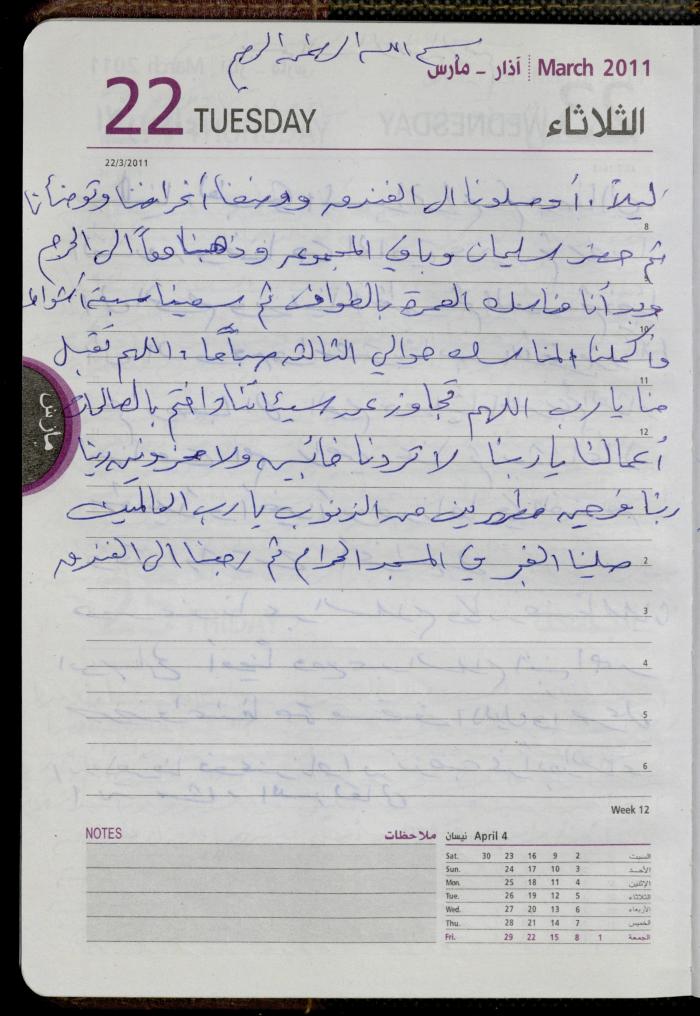 بسم الله الرحمن الرحيم
March 2011 آذار - مارس
22 TUESDAY الثلاثاء
22/3/2011
ليلاً. أوصلونا الى الفندق ووضعنا أغراضنا وتوضأنا
8
ثم حضر سليمان وباقي المجموعة وذهبنا معاً الى الحرم
9
وبدأنا مناسك العمرة بالطواف ثم سعينا سبعة أشواط
10
وأكملنا المناسك حوالي الثالثة صباحاً، اللهم تقبل
11
منا يا رب اللهم تجاوز عن سيئاتنا واختم بالصالحات
مارس
12
أعمالنا يا ربنا لا تردنا خائبين ولا محزونين ربنا
ربنا فرحين مطهرين من الذنوب يا رب العالمين
صلينا الفجر في المسجد الحرام ثم رجعنا الى الفندق
2
3
4
5
6
Week 12
NOTES ملاحظات
April 4 نيسان
Sat. 30 23 16 9 2 السبت
Sun. 24 17 10 3 الأحد
Mon. 25 18 11 4 الإثنين
Tue. 26 19 12 5 الثلاثاء
Wed. 27 20 13 6 الأربعاء
Thu. 28 21 14 7 الخميس
Fri. 29 22 15 8 1 الجمعة